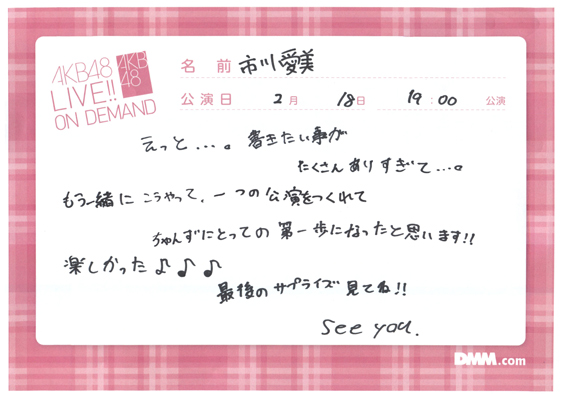 AKB48
LIVE!!
ON DEMAND
AKB
48
名 前 市川愛美
公演日 2月 18日 19:00 公演
えっと...。書きたい事が
たくさんありすぎて...。
もう一緒に こうやって、一つの公演をつくれて
ちゃんずにとっての 第一歩になったと思います!!
楽しかった♪♪♪
最後のサプライズ見てね!!
see you.
DMM.com